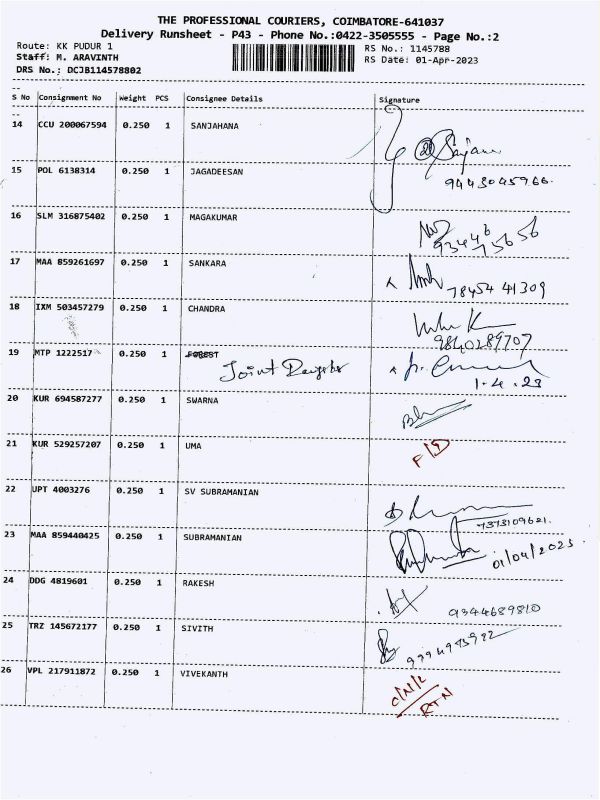 THE PROFESSIONAL COURIERS, COIMBATORE-641037
Delivery Runsheet - P43 - Phone No.:0422-3505555 - Page No.:2
Route: KK PUDUR 1
RS No.: 1145788
Staff: M. ARAVINTH
RS Date: 01-Apr-2023
DRS No.: DCJB114578802
S No Consignment No Weight PCS Consignee Details Signature
14 CCU 200067594 0.250 1 SANJAHANA
15 POL 6138314 0.250 1 JAGADEESAN
9443045966.
16 SLM 316875402 0.250 1 MAGAKUMAR
93446
75656
17 MAA 859261697 0.250 1 SANKARA
78454 41309
18 IXM 503457279 0.250 1 CHANDRA
9840289707
19 MTP 1222517 0.250 1 FOREST
Joint
1.4.23
20 KUR 694587277 0.250 1 SWARNA
21 KUR 529257207 0.250 1 UMA
22 UPT 4003276 0.250 1 SV SUBRAMANIAN
7373109621.
23 MAA 859440425 0.250 1 SUBRAMANIAN
01/04/2023
24 DDG 4819601 0.250 1 RAKESH
9344689810
25 TRZ 145672177 0.250 1 SIVITH
26 VPL 217911872 0.250 1 VIVEKANTH
RTN